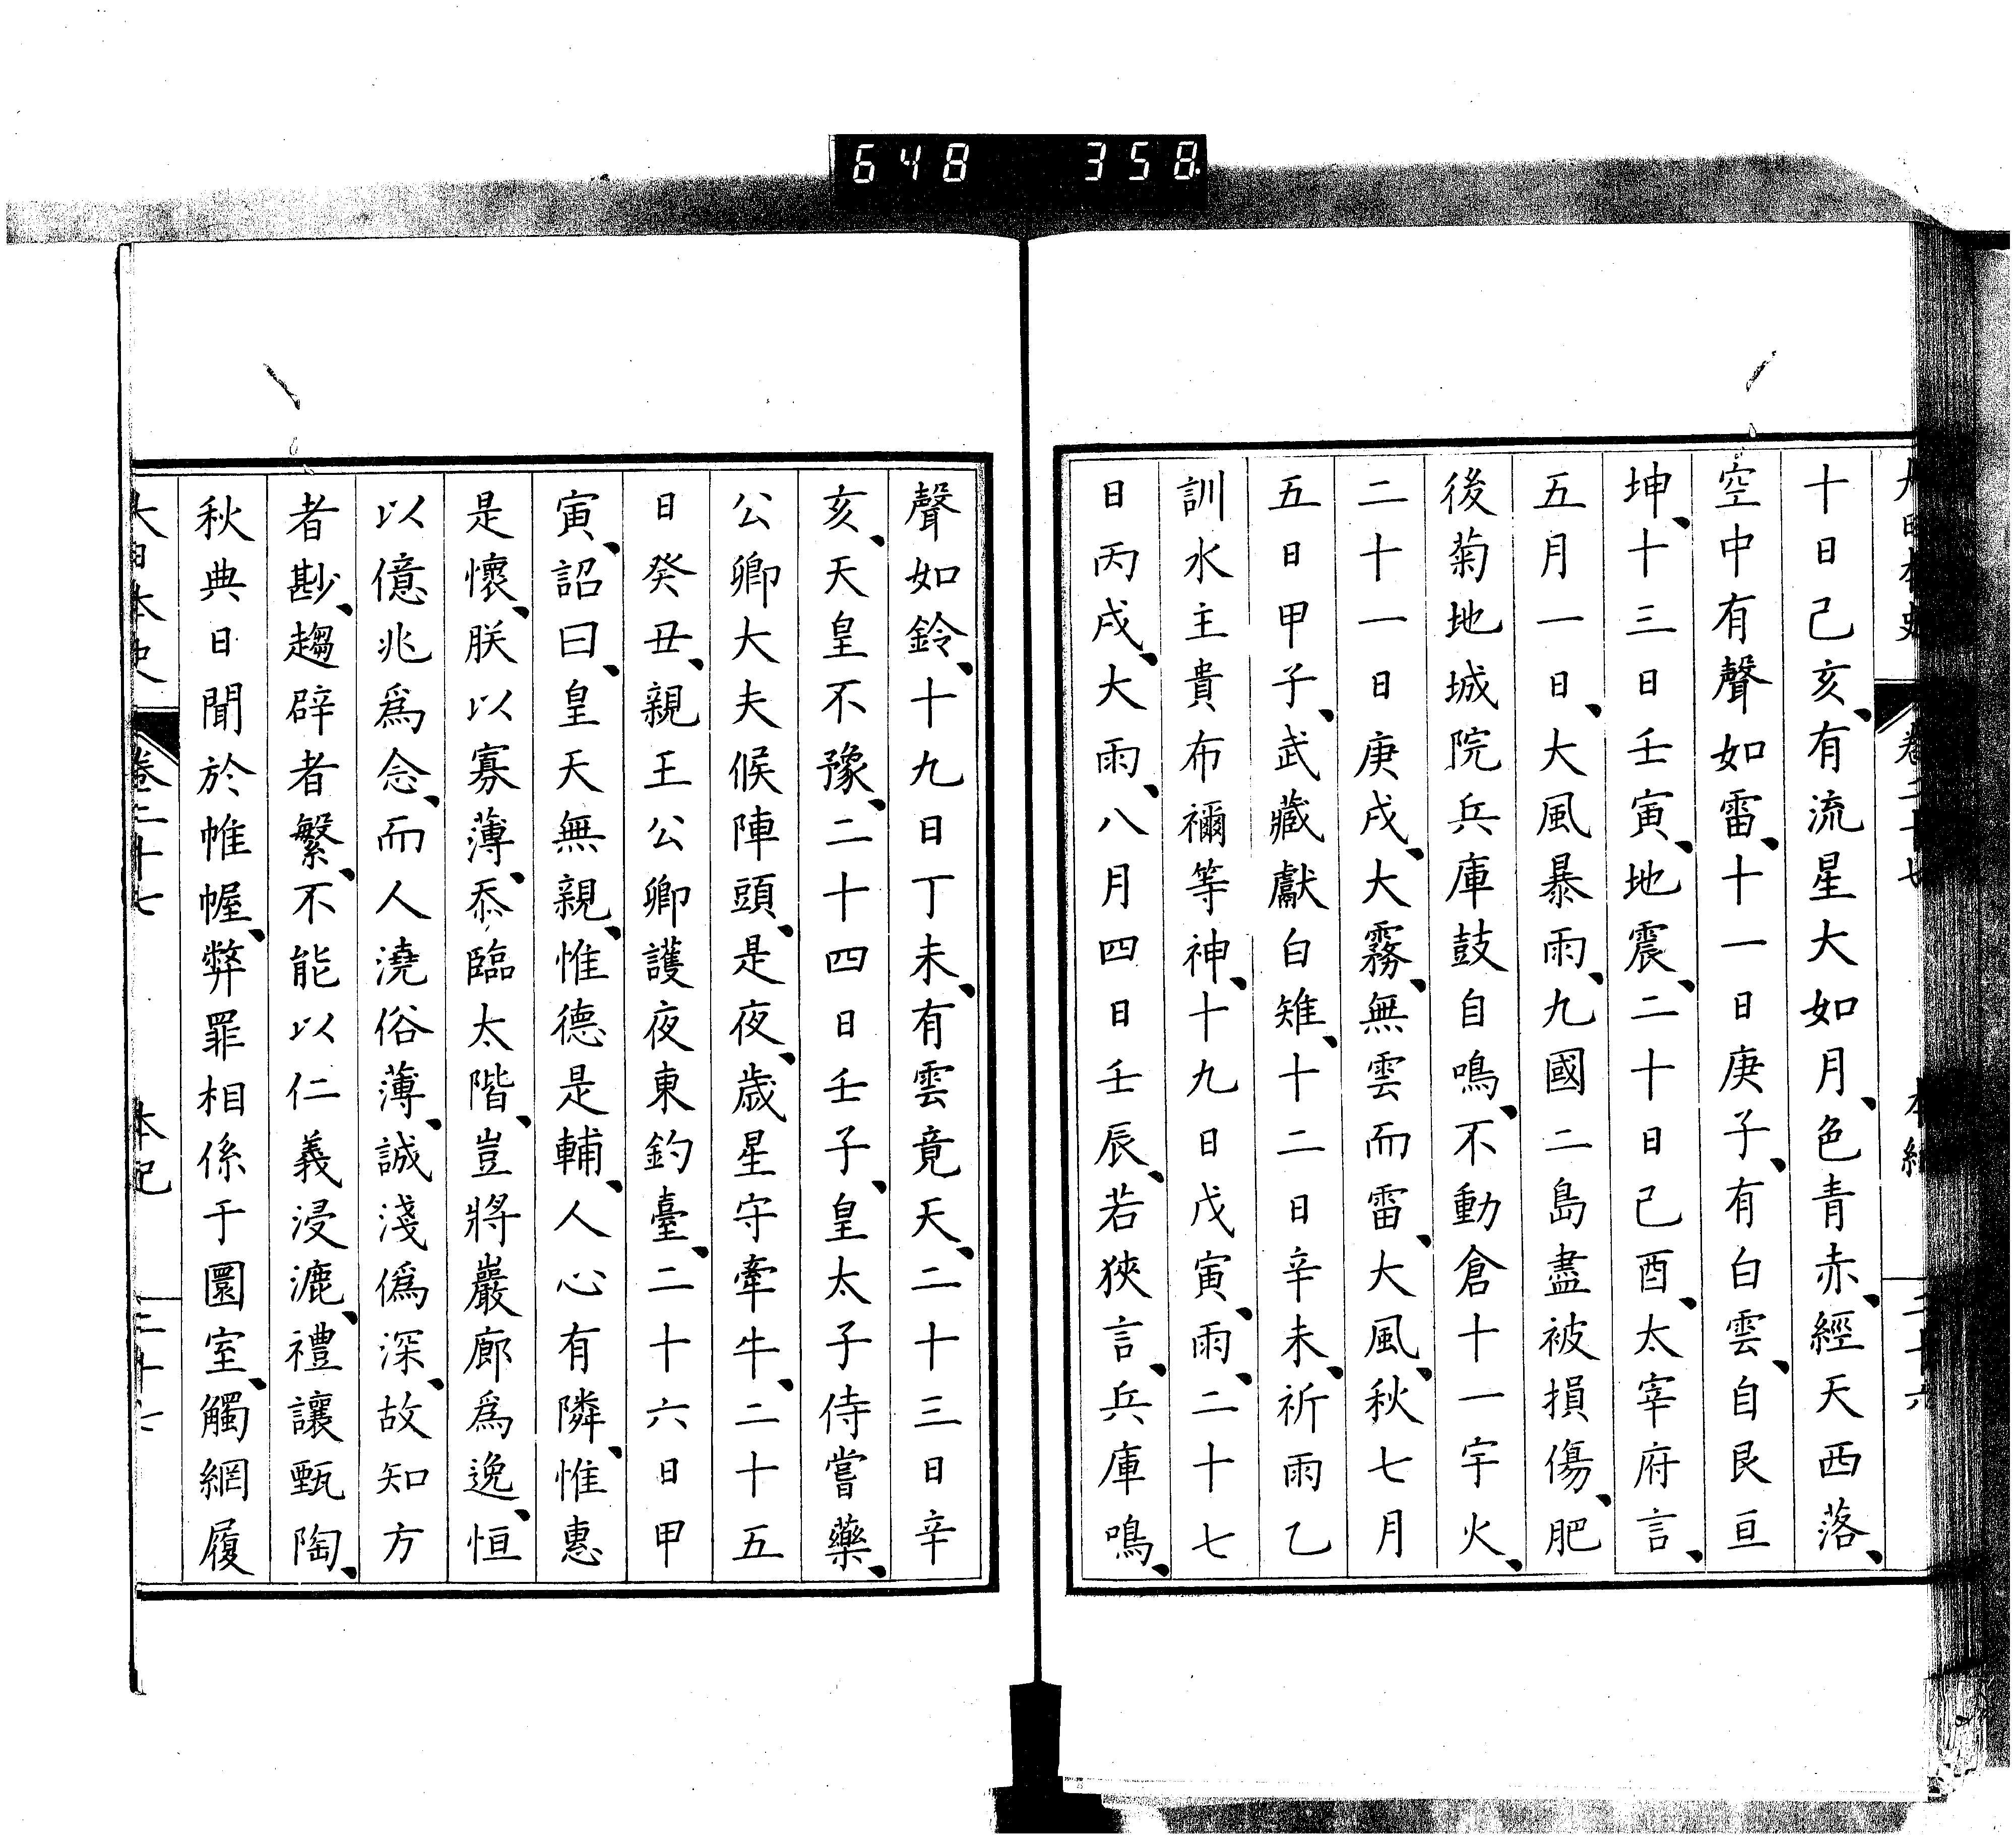 648 358
大日本史 卷二十七 本紀 二十六
十日己亥、有流星大如月、色青赤、經天西落、
空中有聲如雷、十一日庚子、有白雲、自艮亘
坤、十三日壬寅、地震、二十日己酉、太宰府言、
五月一日、大風暴雨、九國二島盡被損傷、肥
後菊地城院兵庫鼓自鳴、不動倉十一宇火、
二十一日庚戌、大霧、無雲而雷、大風、秋七月
五日甲子、武藏獻白雉、十二日辛未、祈雨乙
訓水主貴布禰等神、十九日戊寅、雨、二十七
日丙戌、大雨、八月四日壬辰、若狹言、兵庫鳴、
聲如鈴、十九日丁未、有雲竟天、二十三日辛
亥、天皇不豫、二十四日壬子、皇太子侍嘗藥、
公卿大夫候陣頭、是夜、歲星守牽牛、二十五
日癸丑、親王公卿護夜東釣臺、二十六日甲
寅、詔曰、皇天無親、惟德是輔、人心有隣、惟惠
是懷、朕以寡薄、忝臨太階、豈將巖廊爲逸、恒
以億兆爲念、而人澆俗薄、誠淺僞深、故知方
者尠、趨辟者繁、不能以仁義浸漉、禮讓甄陶、
秋典日聞於帷幄、弊罪相係于圜室、觸網履
大日本史 卷二十七 本紀 二十七